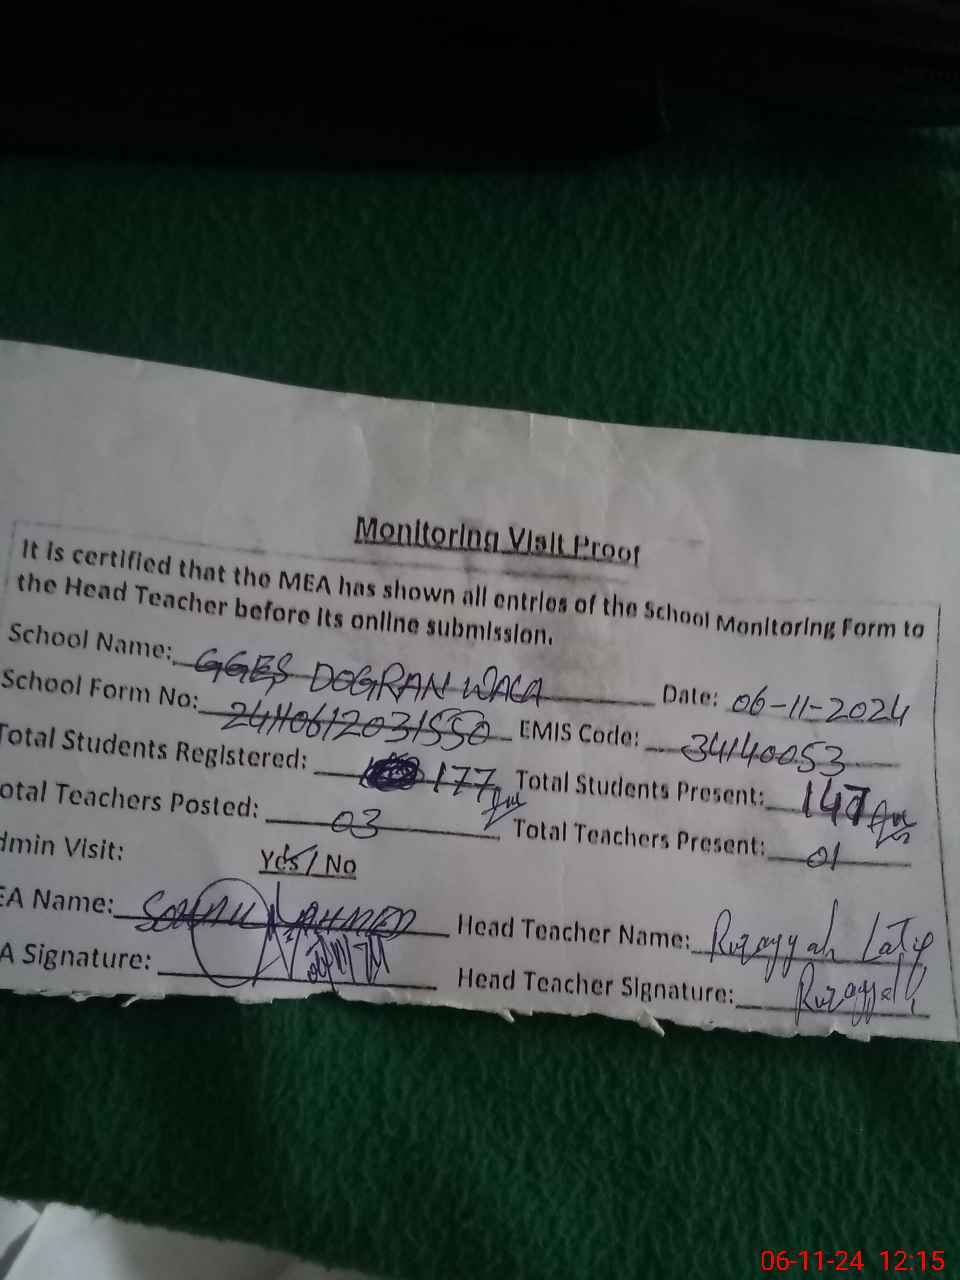 Monitoring Visit Proof
It is certified that the MEA has shown all entries of the School Monitoring Form to
the Head Teacher before its online submission.
School Name: GGES DOGRAN WALA Date: 06-11-2024
School Form No: Z4110612031550 EMIS Code: 34140053
Total Students Registered: 177 Total Students Present: 147
otal Teachers Posted: 03 Total Teachers Present: 01
dmin Visit: Yes / No
EA Name: AHMED Head Teacher Name: Ruzayyah Latif
A Signature: Head Teacher Signature: Ruzayyah
06-11-24 12:15